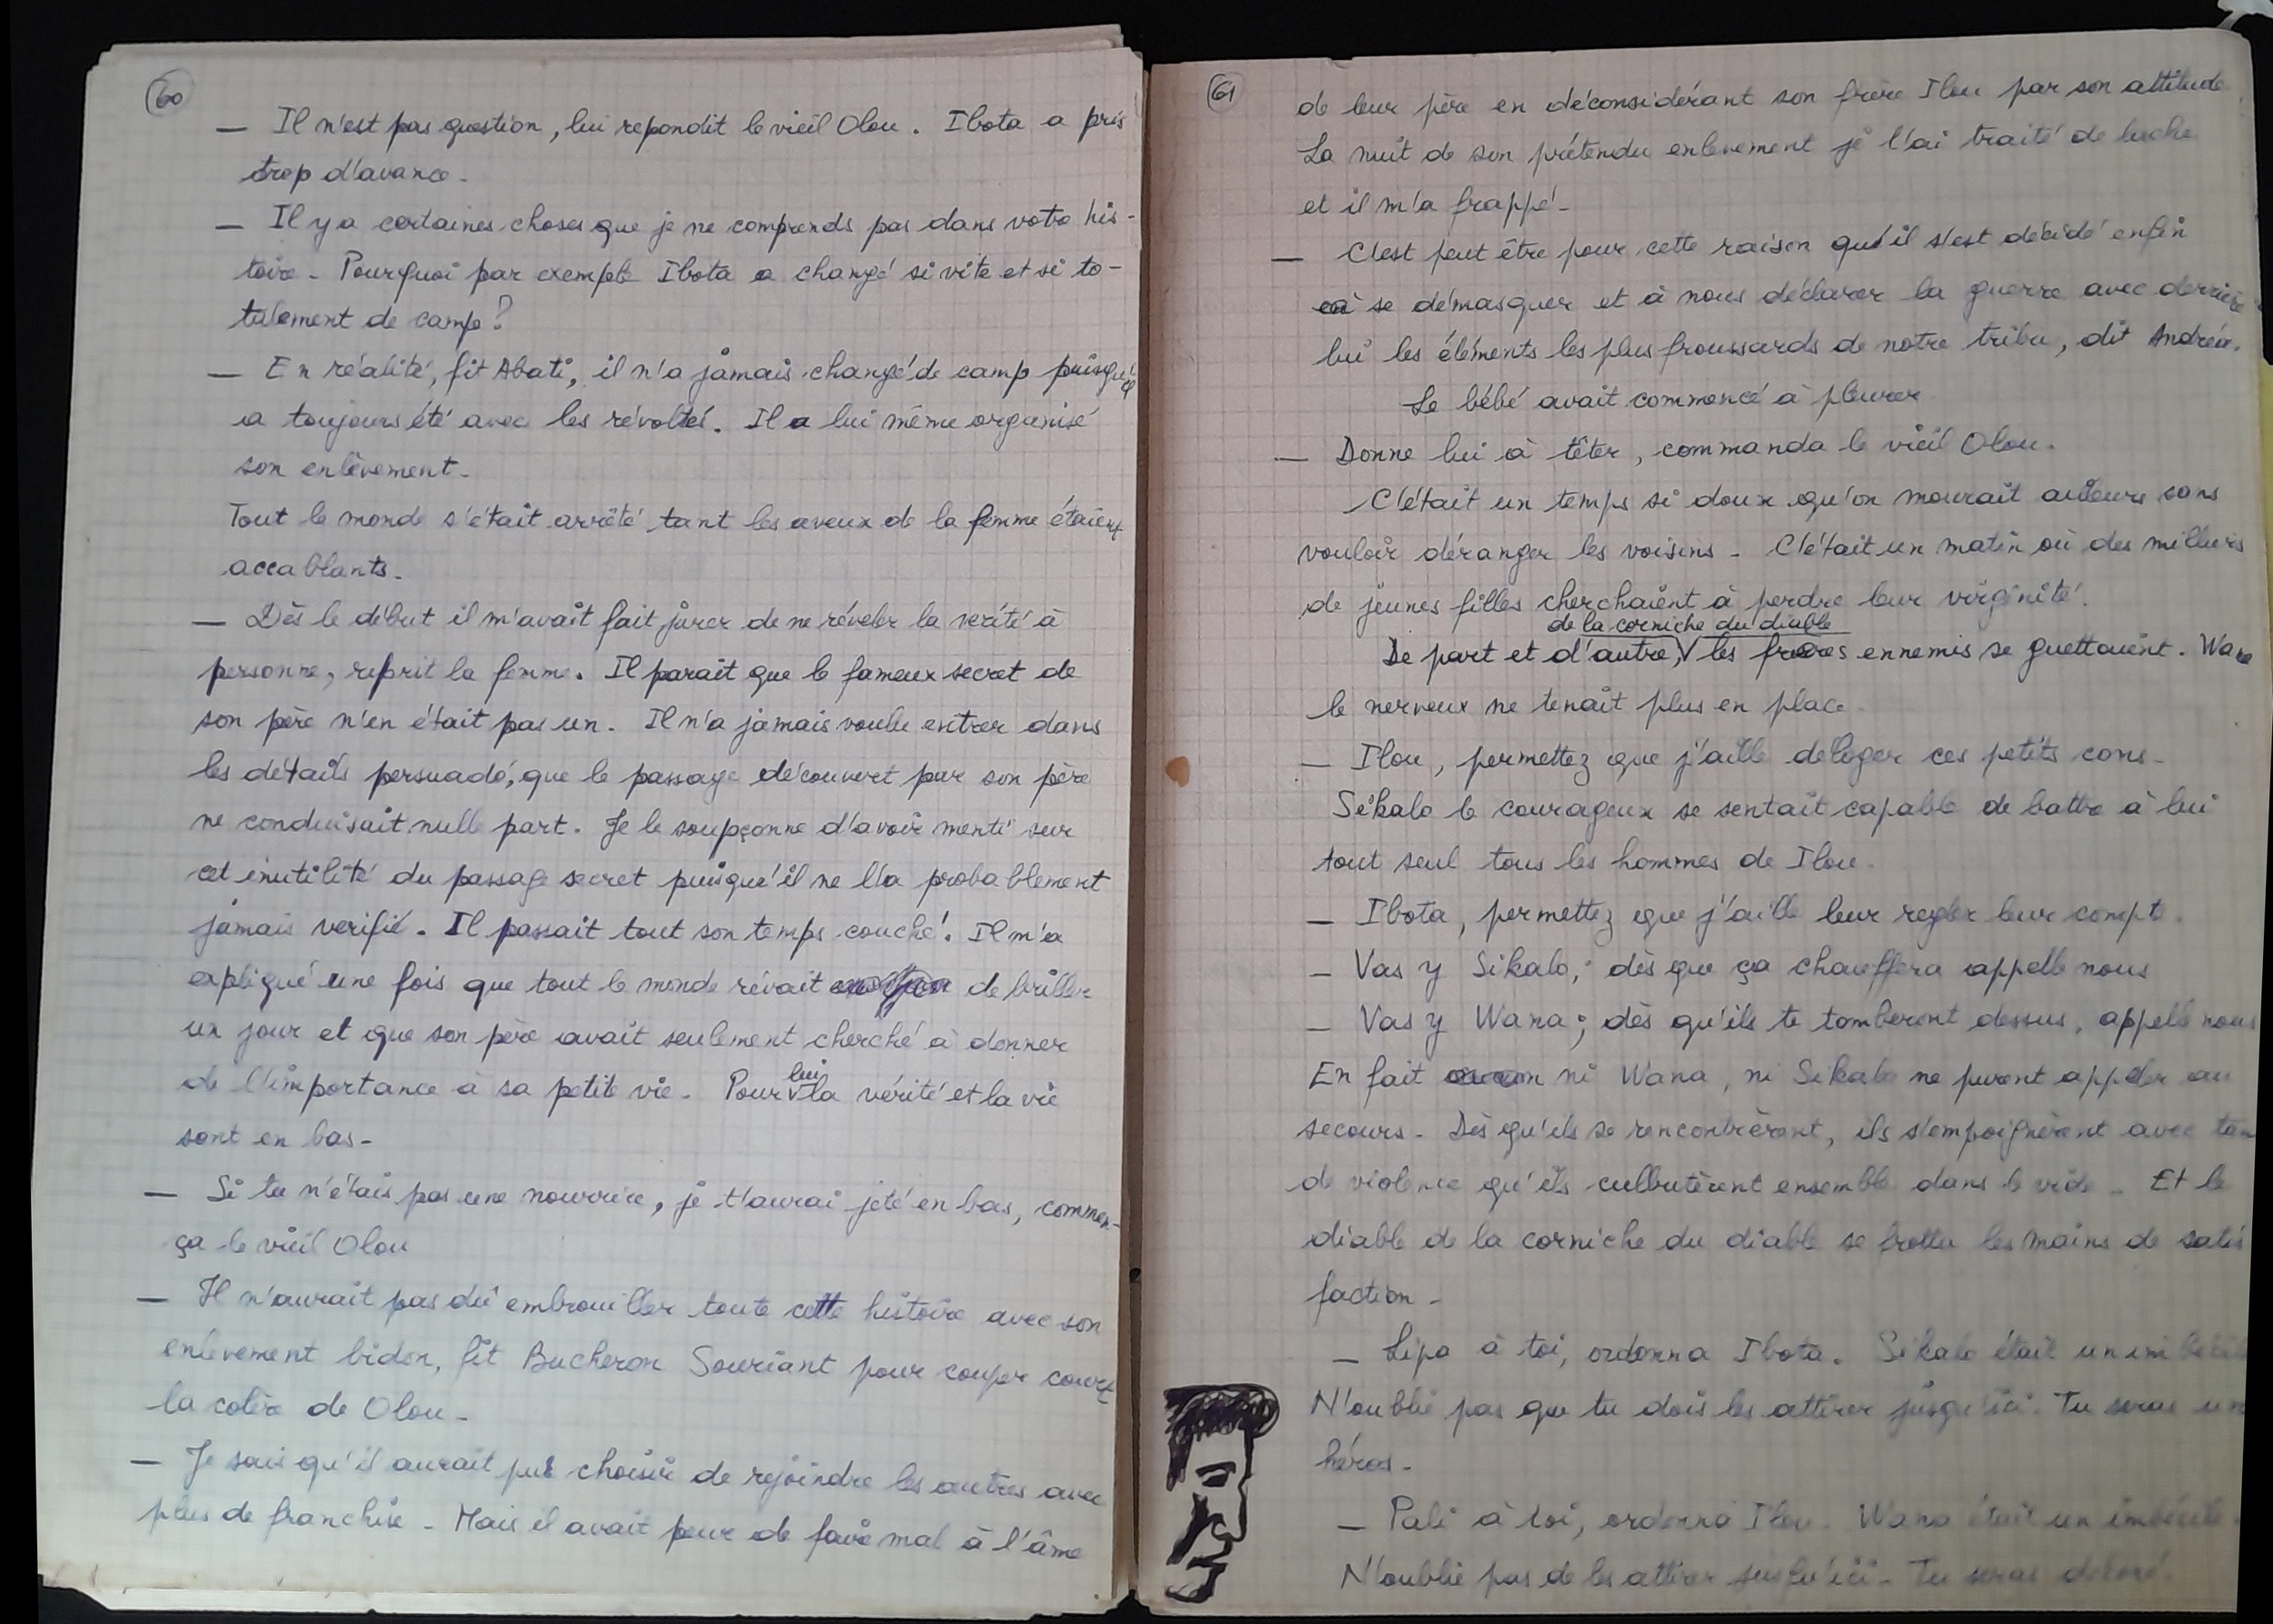 60
— Il n'est pas question, lui repondit le vieil Olou. Ibota a pris
trop d'avance.
— Il y a certaines choses que je ne comprends pas dans votre his-
toire. Pourquoi par exemple Ibota a changé si vite et si to-
talement de camp ?
— En réalité, fit Abati, il n'a jamais changé de camp puisqu'il
a toujours été avec les révoltés. Il a lui même organisé
son enlèvement.
Tout le monde s'était arrêté tant les aveux de la femme étaient
accablants.
— Dès le début il m'avait fait jurer de ne révéler la verité à
personne, reprit la femme. Il parait que le fameux secret de
son père n'en était pas un. Il n'a jamais voulu entrer dans
les détails persuadé, que le passage découvert par son père
ne conduisait nulle part. Je le soupçonne d'avoir menti sur
cet inutilité du passage secret puisqu'il ne l'a probablement
jamais verifié. Il passait tout son temps couché. Il m'a
expliqué une fois que tout le monde rêvait de briller
un jour et que son père avait seulement cherché à donner
de l'importance à sa petite vie. Pour lui la vérité et la vie
sont en bas.
— Si tu n'étais pas une nourrice, je t'aurai jeté en bas, commen-
ça le vieil Olou
— Il n'aurait pas dû embrouiller toute cette histoire avec son
enlevement bidon, fit Bucheron Souriant pour couper court
la colère de Olou.
— Je sais qu'il aurait put choisir de rejoindre les autres avec
plus de franchise. Mais il avait peur de faire mal à l'âme
61
de leur père en déconsidérant son frère Ilou par son attitude.
La nuit de son prétendu enlevement je l'ai traité de lache
et il m'a frappé.
— C'est peut être pour cette raison qu'il s'est décidé enfin
à se démasquer et à nous déclarer la guerre avec derrière
lui les éléments les plus froussards de notre tribu, dit Andréa.
Le bébé avait commencé à pleurer
— Donne lui à têter, commanda le vieil Olou.
C'était un temps si doux qu'on mourait ailleurs sans
vouloir déranger les voisins. C'était un matin où des milliers
de jeunes filles cherchaient à perdre leur virginité.
De part et d'autre, de la corniche du diable les freres ennemis se guettaient. Wana
le nerveux ne tenait plus en place.
— Ilou, permettez que j'aille deloger ces petits cons.
Sikalo le courageux se sentait capable de battre à lui
tout seul tous les hommes de Ilou.
— Ibota, permettez que j'aille leur regler leur compte.
— Vas y Sikalo, dès que ça chauffera appelle nous
— Vas y Wana ; dès qu'ils te tomberont dessus, appelle nous
En fait ni Wana, ni Sikalo ne purent appeler au
secours. Dès qu'ils se rencontrèrent, ils s'empoignèrent avec tan
de violence qu'ils culbutèrent ensemble dans le vide. Et le
diable de la corniche du diable se frotta les mains de satis
faction.
— Lipa à toi, ordonna Ibota. Sikalo était un imbécile
N'oublie pas que tu dois les attirer jusqu'ici. Tu seras un
héros.
— Pali à toi, ordonna Ilou. Wana était un imbécile.
N'oublie pas de les attirer jusqu'ici. Tu seras décoré.